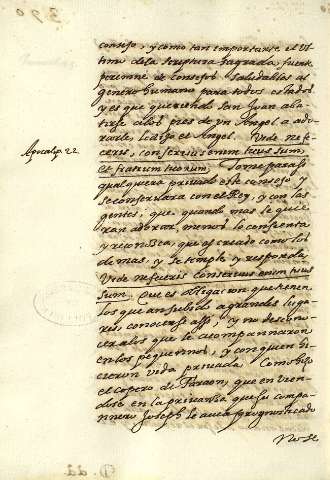 390
consejo, y como tan importante el ul-
timo de la Scriptura Sagrada, fuente
perenne de consejos saludables al
genero humano para todos estados
y es que queriendo San Juan aba-
tirse a los pies de un Angel a ado-
rarle, le dijo el Angel. Vide ne fe-
ceris, conservus enim tuus sum,
Apocalip. 22.
et fratrum tuorum. Tome para si
qualquiera privado este consejo y
se conservara con el Rey, y con las
gentes, que, quando mas le quie-
ran adorar, menos lo consienta
y reconozca, que es criado como los
de mas, y se temple y responda
Vide ne feceris Conservus enim tuus
Sum. Que es obligacion que tienen
los que an subido a grandes luga-
res conocerse assi, y no descono-
cer a los que le acompannaron
en los pequennos, y con quien hi-
cieron vida privada. Como hizo
el copero de Faraon, que en vien-
dose en la privanza, que su compa-
nnero Joseph le avia prognosticado
no se